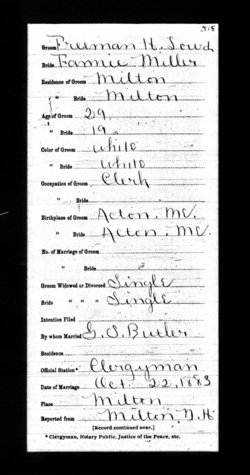 Groom Freeman H. Lowd
Bride Fannie Miller
Residence of Groom Milton
" Bride Milton
Age of Groom 29
" Bride 19
Color of Groom White
" Bride White
Occupation of Groom Clerk
" Bride
Birthplace of Groom Acton. Me.
" Bride Acton. Me.
No. of Marriage of Groom
" Bride
Groom Widowed or Divorced Single
Bride " " " Single
Intention Filed
By whom Married G. S. Butler
Residence
Official Station* Clergyman
Date of Marriage Oct. 22, 1883
Place Milton
Reported from Milton N.H
[Record continued over.]
* Clergyman, Notary Public, Justice of the Peace, etc.